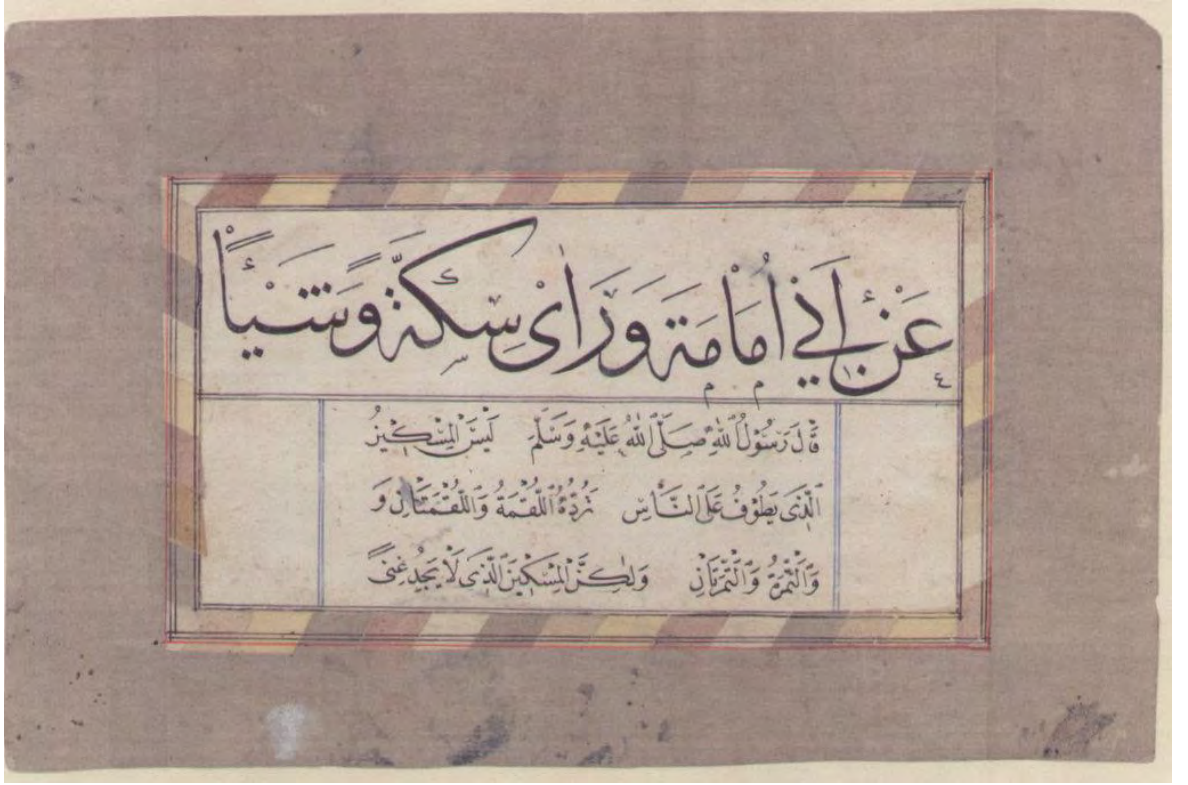 عَنْ أَبِي أُمَامَةَ وَرَأَى سِكَّةً وَشَيْئًا
قَالَ رَسُولُ اللّٰهِ صَلَّى اللّٰهُ عَلَيْهِ وَسَلَّمَ لَيْسَ الْمِسْكِينُ
الَّذِى يَطُوفُ عَلَى النَّاسِ تَرُدُّهُ اللُّقْمَةُ وَاللُّقْمَتَانِ وَ
وَالتَّمْرَةُ وَالتَّمْرَتَانِ وَلٰكِنَّ الْمِسْكِينَ الَّذِى لَا يَجِدُ غِنًى